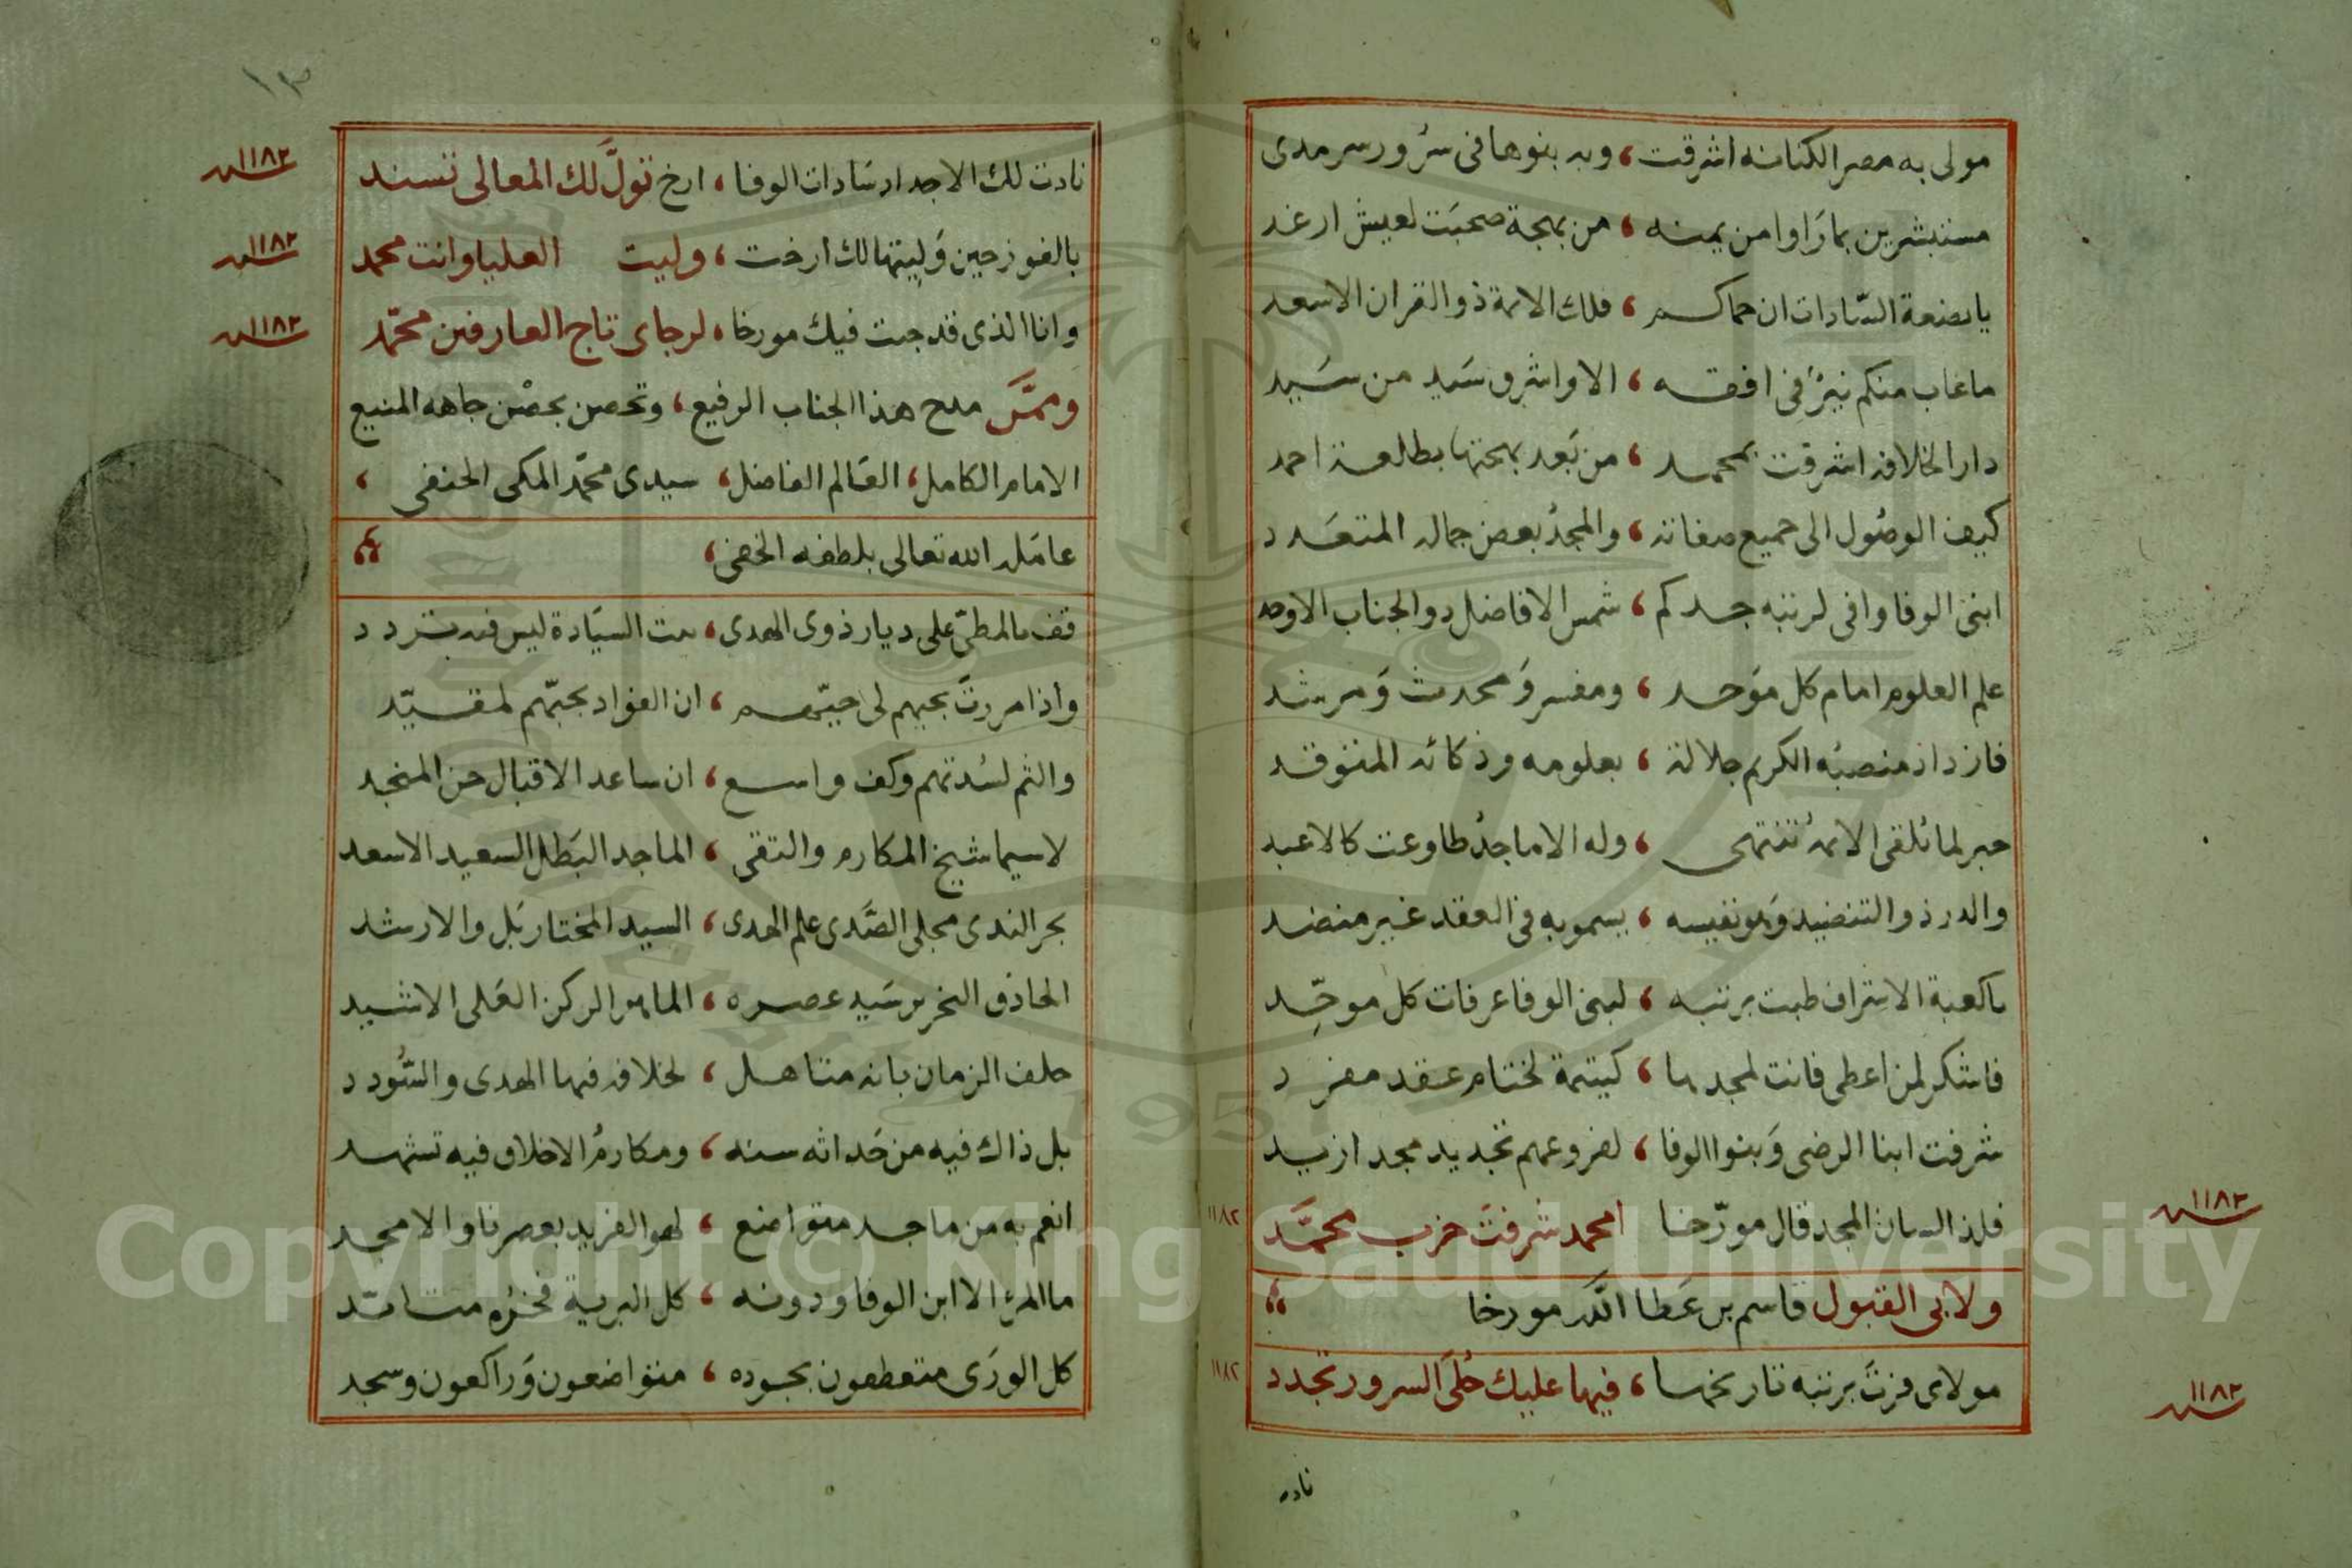 مولى به مصر الكنانه اشرقت ، وبه بنوها فى سرور سرمدى
مستبشرين بما راوا من يمنه ، من بهجة صحبت لعيش ارغد
يا بضعة السّادات ان حماكم ، فلك الائمة ذو القران الاسعد
ما غاب منكم نيّرٌ فى افقه ، الا واشرق سَيد من سَيد
دار الخلافه اشرقت بمحمد ، من بَعد بهجتها بطالعة احمد
كيف الوصُول الى جميع صفاته ، والمجدُ بعض جماله المتعَدد
ابنى الوفا وافى لرتبه جدكم ، شمس الافاضل ذو الجناب الاوحد
علم العلوم امام كل موَحد ، ومفسر وَمحدث وَمرشد
فازداد منصبُه الكريم جلالة ، بعلومه وذكائه المتوقد
حبر لما تُلقى الائمة تنتهى ، وله الاماجدُ طاوعت كالاعبد
والدر ذو التنضيد وَهو نفيسه ، يسمو به فى العقد غير منضد
يا كعبة الاشراف طبت برتبه ، لبنى الوفا عرفات كل موحِّد
فاشكر لمن اعطى فانت لمجدها ، كيتيمة لختام عقد مفرد
شرفت ابنا الرضى وَبنوا الوفا ، لفروعهم تجديد مجد ازيد
فلذا لسان المجد قال مورّخا امحمد شرفتَ حزب محمَّد ١١٨٢
١١٨٢ سنه
ولابى القبول قاسم بن عَطا الله مورخا
مولاى فزتَ برتبه تاريخها ، فيها عليك حُلَى السرور تجدد ١١٨٢
١١٨٢ سنه
نادت
١٣
نادت لك الاجداد سَادات الوفا ، ارخ تَولَّ لك المعالى تسند ١١٨٢ سنه
بالفوز حين وَليتها لك ارخت ، وليت العليا وانت محمد ١١٨٢ سنه
وانا الذى قد جئت فيك مورخا ، لرجاى تاج العارفين محمّد ١١٨٢ سنه
وممَّن مدح هذا الجناب الرفيع ، وتحصن بحصْن جاهه المنيع
الامام الكامل ، العَالم الفاضل ، سيدى محمّد المكى الحنفى ،
عامَله الله تعالى بلطفه الخفى ،
قف بالمطىّ على ديار ذوى الهدى ، بيت السيَادة ليس فيه تردد
واذا مررتَ بحيهم لى حيّهم ، ان الفواد بحبّهم لمقيّد
والثم لسُدتهم وكف واسع ، ان ساعد الاقبال حزن المنجد
لا سيما شيخ المكارم والتقى ، الماجد البَطل السعيد الاسعد
بحر الندى مجلى الصَّدى علم الهدى ، السيد المختار بَل والارشد
الحاذق النحرير سَيد عصره ، الماهر الركن العَلى الاشيد
حلف الزمان بانه متاهل ، لخلافه فيها الهدى والسُّودد
بل ذاك فيه من حَداثه سنه ، ومكارمُ الاخلاق فيه تشهد
انعم به من ماجد متواضع ، لهو الفريد بعصرنا والامجد
ما المرء الا ابن الوفا ودونه ، كل البرية فخرُه
كل الورَى متعطفون بجوده ، متواضعون وَراكعون وسجد
Copyright © King Saud University
1957